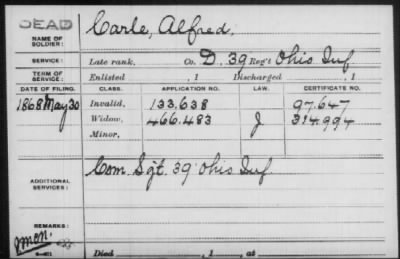 DEAD
NAME OF SOLDIER: Carle, Alfred.
SERVICE: Late rank, Co. D, 39 Reg't Ohio Inf.
TERM OF SERVICE: Enlisted , 1 Discharged , 1
DATE OF FILING. CLASS. APPLICATION NO. LAW. CERTIFICATE NO.
1868 May 30 Invalid, 133,638 97,647
Widow, 466,483 J 314,994
Minor,
ADDITIONAL SERVICES: Com. Sgt. 39 Ohio Inf.
REMARKS:
Died , 1 , at